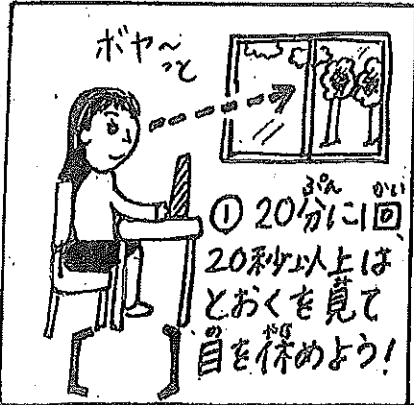 ボヤ〜っと
① 20分に1回、
20秒以上は
とおくを見て
目を休めよう!